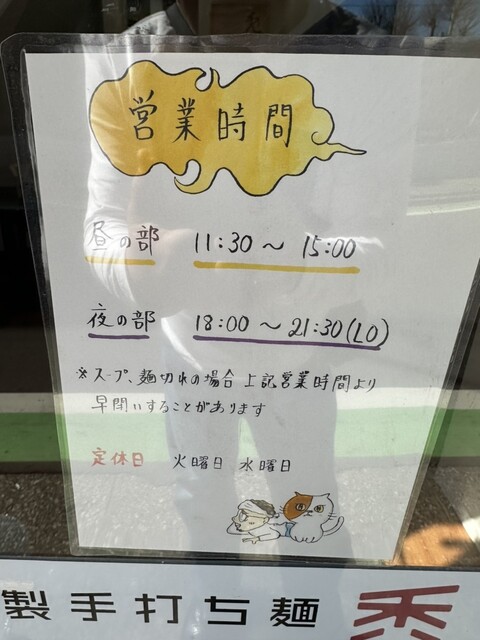 営業時間
昼の部 11:30 〜 15:00
夜の部 18:00 〜 21:30(LO)
※スープ、麺切れの場合 上記営業時間より
早閉いすることがあります
定休日 火曜日 水曜日
製手打ち麺